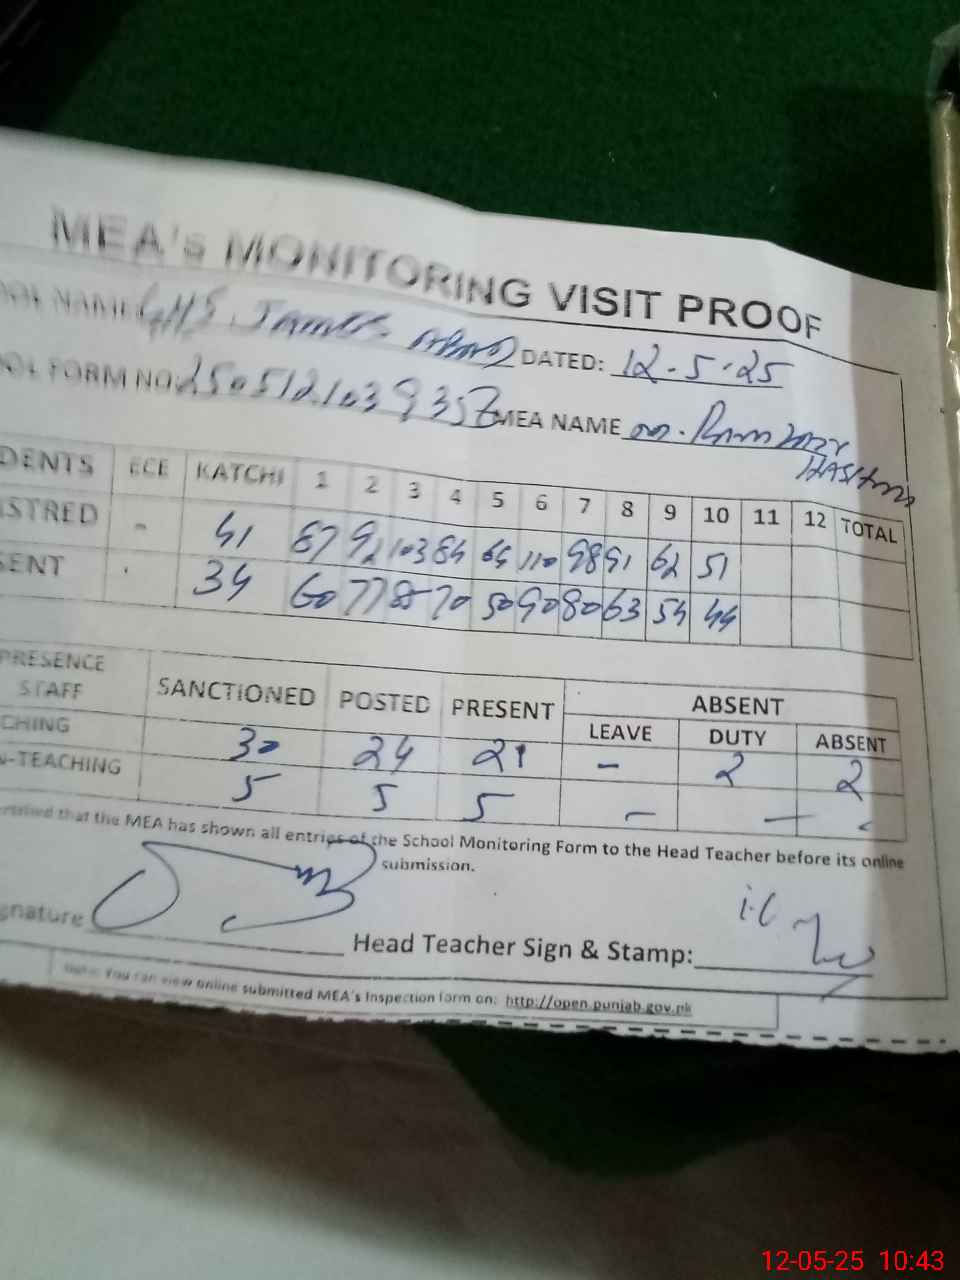 MEA's MONITORING VISIT PROOF
NAME GHS DATED: 12-5-25
FORM NO. MEA NAME
DENTS ECE KATCHI 1 2 3 4 5 6 7 8 9 10 11 12 TOTAL
STRED - 41 87 92 103 84 64 110 98 91 62 51
SENT 34 60 77 70 50 90 80 63 54 44
PRESENCE
STAFF SANCTIONED POSTED PRESENT ABSENT
LEAVE DUTY ABSENT
CHING 30 24 21 - 2 2
N-TEACHING 5 5 5 - -
that the MEA has shown all entries of the School Monitoring Form to the Head Teacher before its online
submission.
gnature Head Teacher Sign & Stamp:
Note: You can view online submitted MEA's Inspection form on: http://open.punjab.gov.pk
12-05-25 10:43